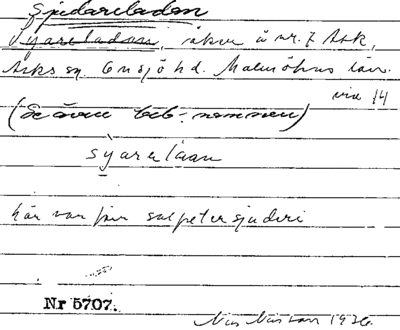 Sjudareladan
Syareladan, åker å nr. 7 Ask,
Asks sn. Onsjö hd. Malmöhus län.
via 14
(Se även beb.-namnen)
syarelaan
här var förr salpetersjuderi
Nr 5707.
Nils Nilsson 1926